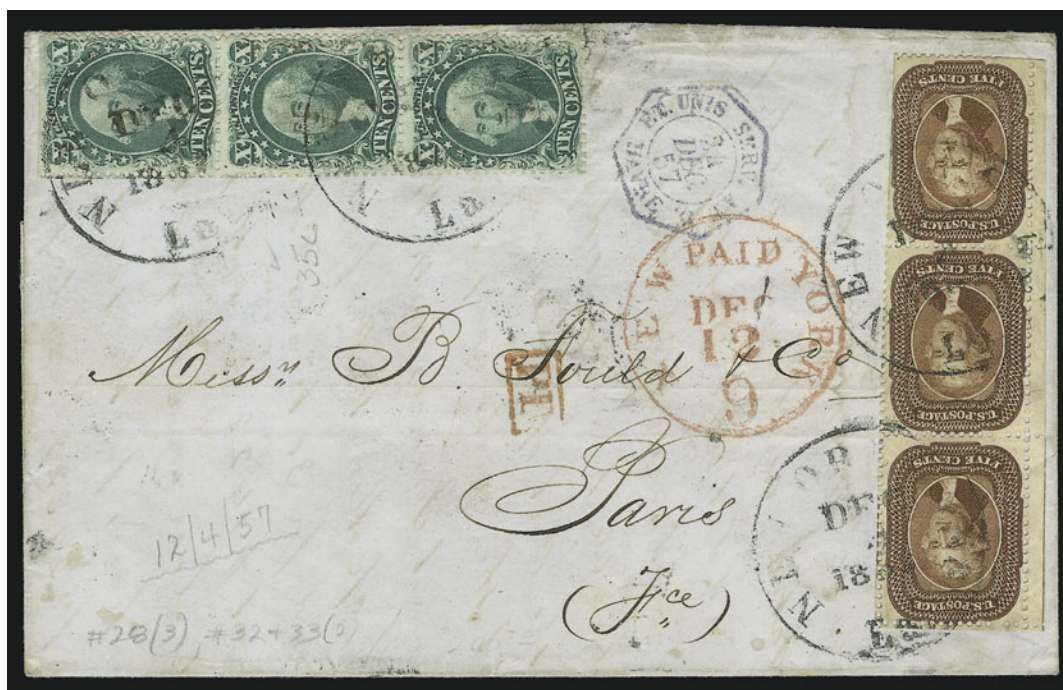 TEN CENTS
X
TEN CENTS
X
TEN CENTS
X
DEC
18
La
18
La
ET. UNIS SERV. AM.
24
DEC
57
NEW PAID YORK
DEC
12
9
U.S. POSTAGE
FIVE CENTS
U.S. POSTAGE
FIVE CENTS
U.S. POSTAGE
FIVE CENTS
EW
N
L
OR
DE
18
La
356
Messrs B. Fould & Co
Paris
(Fce)
12/4/57
#28(3), #32+33(